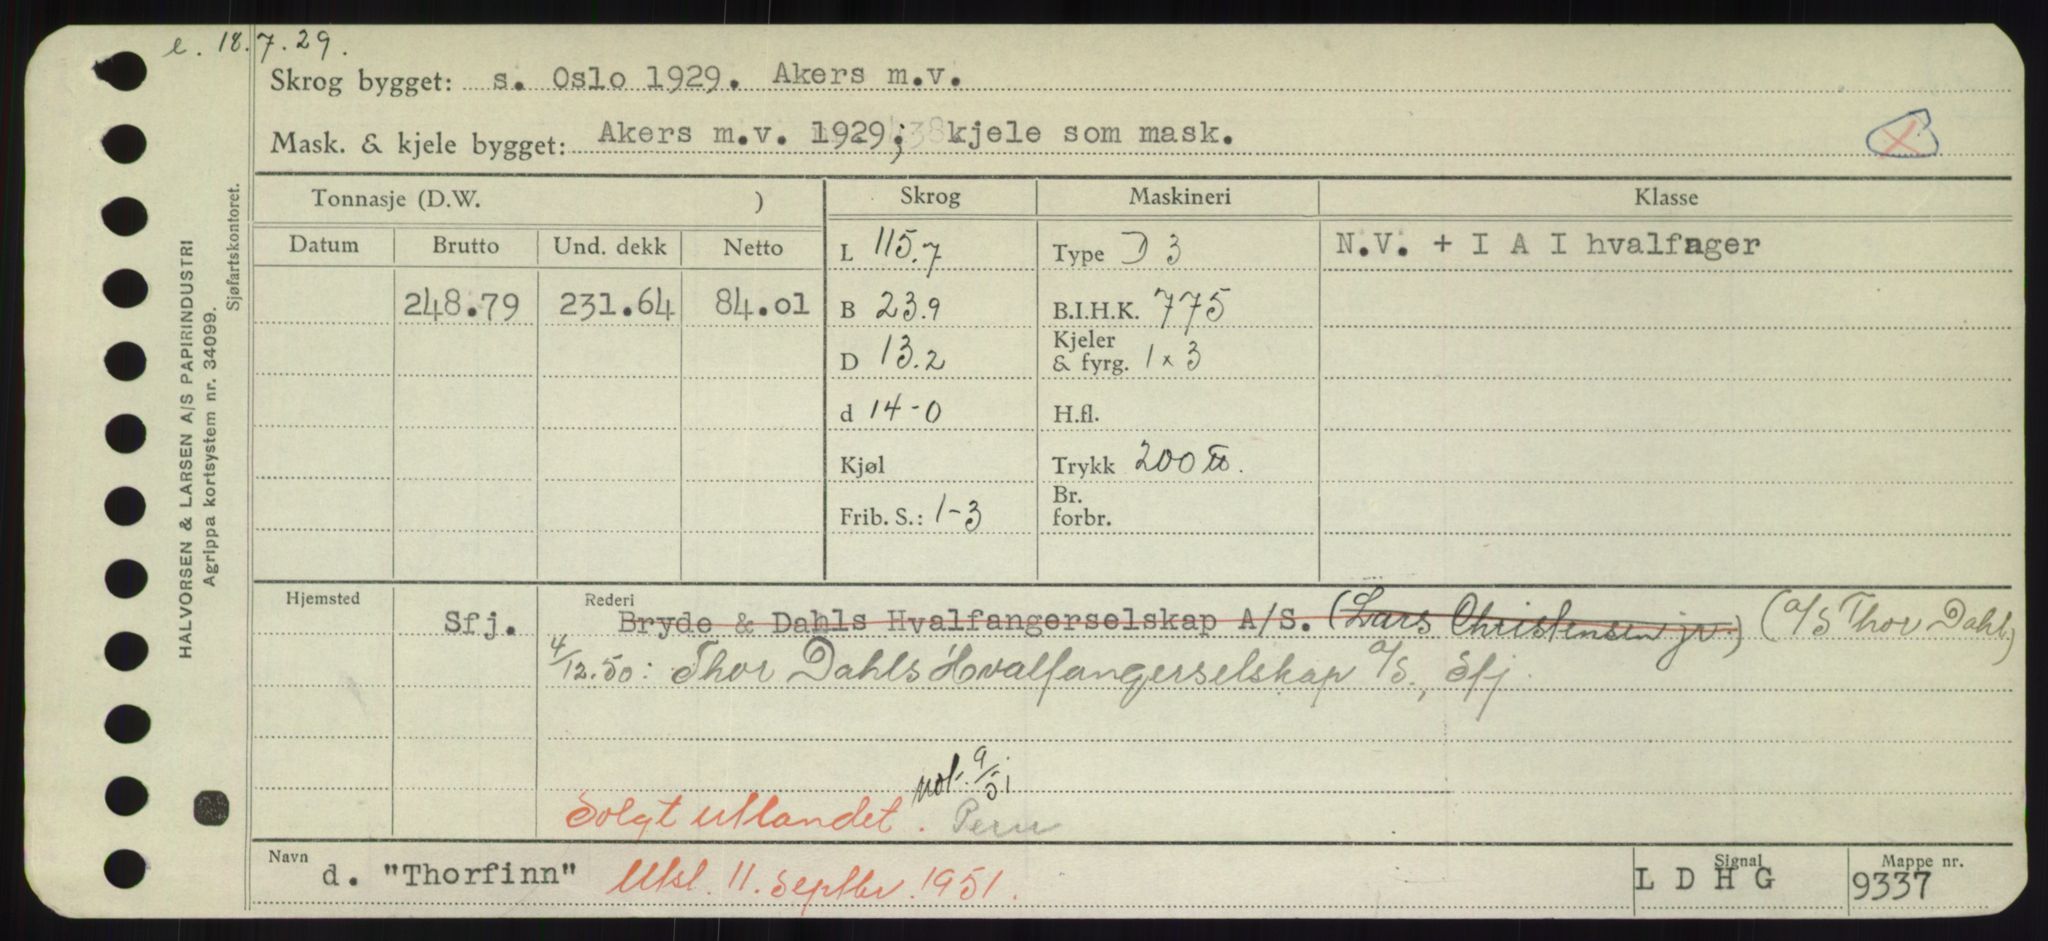 e. 18.7.29.
Skrog bygget: s. Oslo 1929. Akers m.v.
Mask. & kjele bygget: Akers m.v. 1929; kjele som mask.
HALVORSEN & LARSEN A/S PAPIRINDUSTRI
Agrippa kortsystem nr. 34099.
Sjøfartskontoret.
Tonnasje (D.W. ) Skrog Maskineri Klasse
Datum Brutto Und. dekk Netto
L 115.7 Type D 3 N.V. + I A I hvalfnager
248.79 231.64 84.01 B 23.9 B.I.H.K. 775
D 13.2 Kjeler & fyrg. 1 x 3
d 14-0 H.fl.
Kjøl Trykk 200 lb.
Frib. S.: 1-3 Br. forbr.
Hjemsted Rederi
Sfj. Bryde & Dahls Hvalfangerselskap A/S. (Lars Christensen jr.) (A/S Thor Dahl)
4/12.50: Thor Dahls Hvalfangerselskap A/S., Sfj.
not. 9/51
Solgt utlandet. Peru
Navn Signal Mappe nr.
d. "Thorfinn" Utsl. 11. septbr. 1951. L D H G 9337